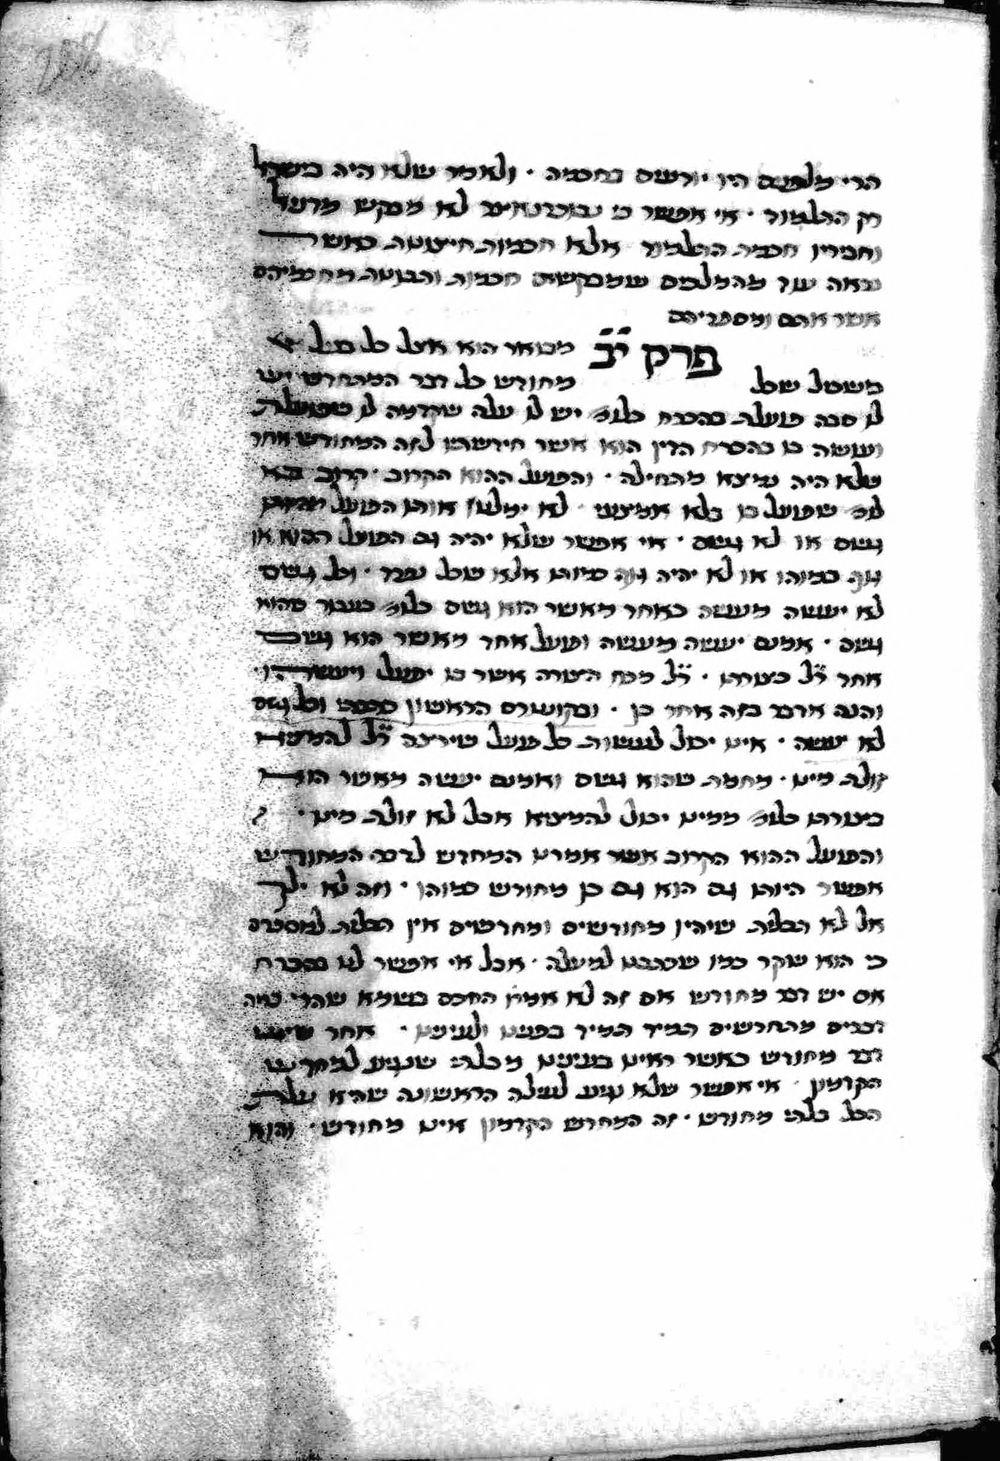 הרי מלפנים היו יורשים בחכמה · ולאמר שלא היה משכיל
רק התלמוד · אי אפשר כי נבוכדנאצר לא מבקש מדניאל
וחבריו חכמת התלמוד אלא חכמות חיצונות כאשר
נראה עוד מהמלכים שמבקשים חכמות והבונות מחכמיהם
אשר אתם ומספריהם
פרק י״ב מבואר הוא אצל כל בעל
משכל שכל מחודש כל דבר המתחדש יש
לו סבה פועלת בהכרח כלומ׳ יש לו עלה שקדמה לו שפועלת
ועושה בו בהכרח הדין הוא אשר חידשהו לזה המחודש אחר
שלא היה נמצא מתחילה · והפועל ההוא הקרוב · קרוב בא
לומ׳ שפועל בו בלא אמצעי · לא ימלט אותו הפועל מהיותו
גשם או לא גשם · אי אפשר שלא יהיה גם הפועל ההוא או
גוף כמוהו או לא יהיה גוף כמוהו אלא שכל נפרד · וכל גשם
לא יעשה מעשה כאחר מאשר הוא גשם כלומ׳ בעבור שהוא
גשם · אמנם יעשה מעשה ופועל אחד מאשר הוא גשם
אחד ר״ל בצורתו · ר״ל מכח הצורה אשר בו יפעל ויעשהו ·
והנה אדבר בזה אחר כן · ובקונטרס הראשון וכל גשם
לא יעשה · אינו יכול לעשות כל פועל שירצה ר״ל להמצא
זולת מינו · מחמת שהוא גשם ואמנם יעשה מאשר הוא
בצורתו כלומ׳ ממינו יכול להמציא אבל לא זולת מינו ·
והפועל ההוא הקרוב אשר אמרנו המחדש לדבר המחודש
אפשר היותו גם הוא גם כן מחודש כמוהו · וזה לא ילך
אל לא תכלית שיהיו מחודשים ומחדשים אין תכלית למספרם
כי הוא שקר כמו שכתבנו למעלה · אבל אי אפשר לנו בהכרח
אם יש דבר מחודש אם זה לא אמת החכם בשמא שהרי כמה
דברים מתחדשים תמיד תמיד בפנינו ולעינינו · אחר שיש
דבר מחודש כאשר ראינו בעינינו מבלתי שנגיע למחדש
הקדמון · אי אפשר שלא נגיע לעלה הראשונה שהיא עלת
הכל בלתי מחודש · זה המחדש הקדמון אינו מחודש · והוא